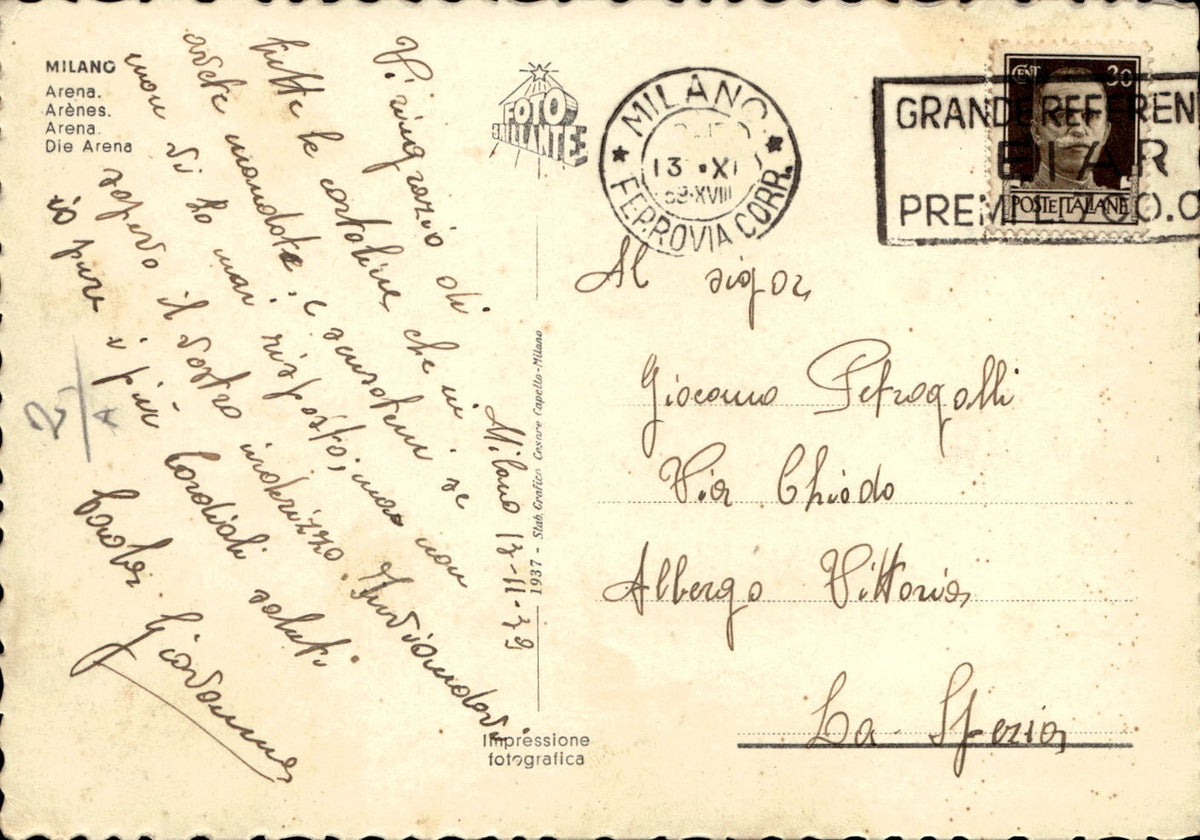 MILANO
Arena.
Arènes.
Arena.
Die Arena
FOTO
BRILLANTE
MILANO
13·XI
39·XVIII
FERROVIA CORR.
CENT 30
POSTE ITALIANE
GRANDE REFEREN
EIAR
PREMI
Milano 13-11-39
Vi ringrazio di
tutte le cartoline che mi
avete mandate, e scusatemi se
non vi ho mai risposto, ma non
sapevo il vostro indirizzo. Inviandovi
io pure i più cordiali saluti
Giovanna
Al sigor
Giacomo Petrogalli
Via Chiodo
Albergo Vittoria
La Spezia
1937 - Stab. Grafico Cesare Capello-Milano
Impressione
fotografica